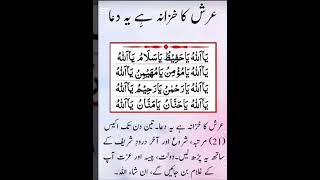 عرش کا خزانہ ہے یہ دعا
یَااَللّٰهُ یَاحَفِیْظُ یَاسَلَامُ یَااَللّٰهُ
یَااَللّٰهُ یَامُؤْمِنُ یَامُهَیْمِنُ یَااَللّٰهُ
یَااَللّٰهُ یَارَحْمٰنُ یَارَحِیْمُ یَااَللّٰهُ
یَااَللّٰهُ یَاحَنَّانُ یَامَنَّانُ یَااَللّٰهُ
عرش کا خزانہ ہے یہ دعا۔ تین دن تک اکیس
(21) مرتبہ، شروع اور آخر درود شریف کے
ساتھ یہ پڑھ لیں۔ دولت، پیسہ اور عزت آپ
کے غلام بن جائیں گے، ان شاء اللہ۔